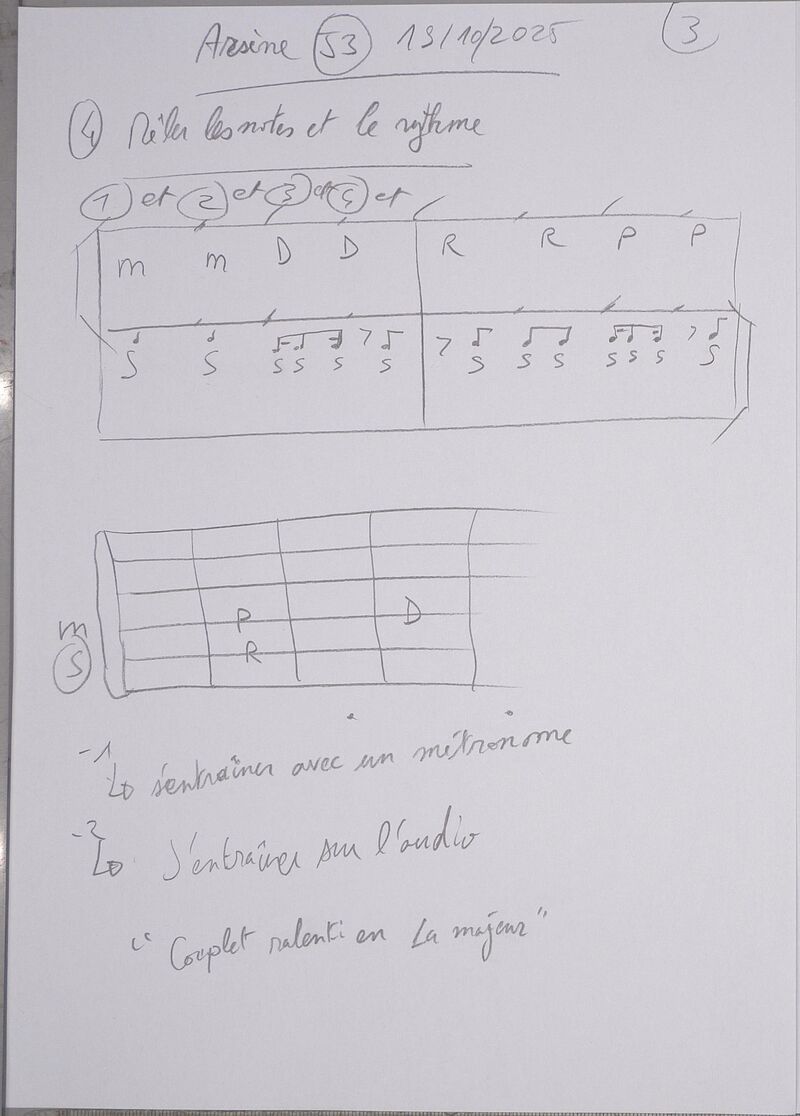 Arsène S3 19/10/2025 3
4 Mêler les notes et le rythme
1 et 2 et 3 et 4 et
m m D D R R P P
S S S S S S S S S S S S S
P D
m R
S
-1
↳ s'entraîner avec un métronome
-2
↳ S'entraîner sur l'audio
"Couplet ralenti en La majeur"